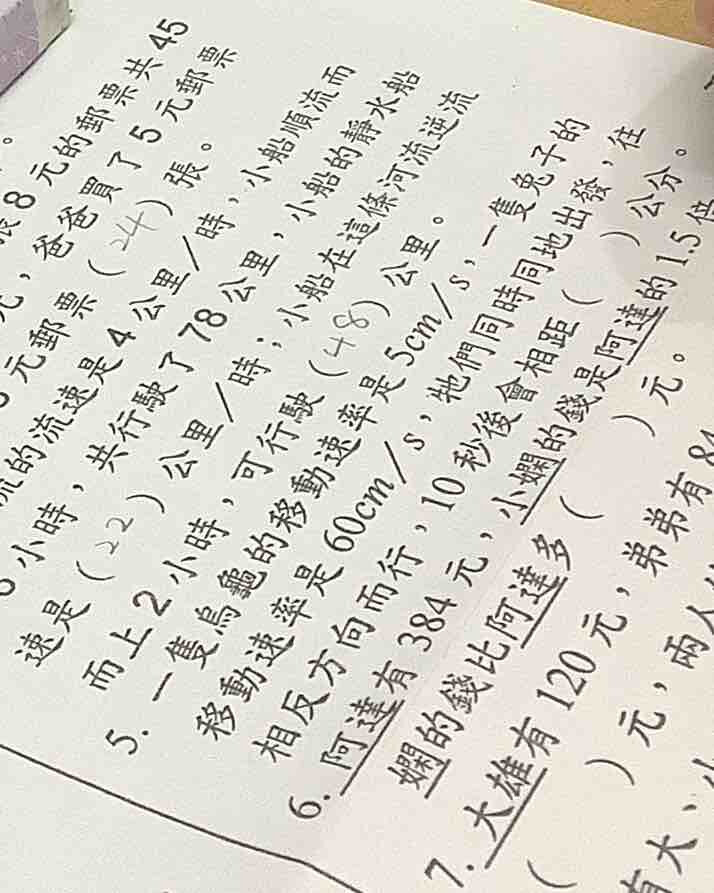 8元的郵票共45
，爸爸買了5元郵票
元郵票（24）張。
的流速是4公里／時，小船順流而
小時，共行駛了78公里，小船的靜水船
速是（22）公里／時；小船在這條河流逆流
而上2小時，可行駛（48）公里。
5. 一隻烏龜的移動速率是5cm／s，一隻兔子的
移動速率是60cm／s，牠們同時同地出發，往
相反方向而行，10秒後會相距（ ）公分。
6. 阿達有384元，小嫻的錢是阿達的1.5倍
嫻的錢比阿達多（ ）元。
7. 大雄有120元，弟弟有84
（ ）元，兩人
大、小